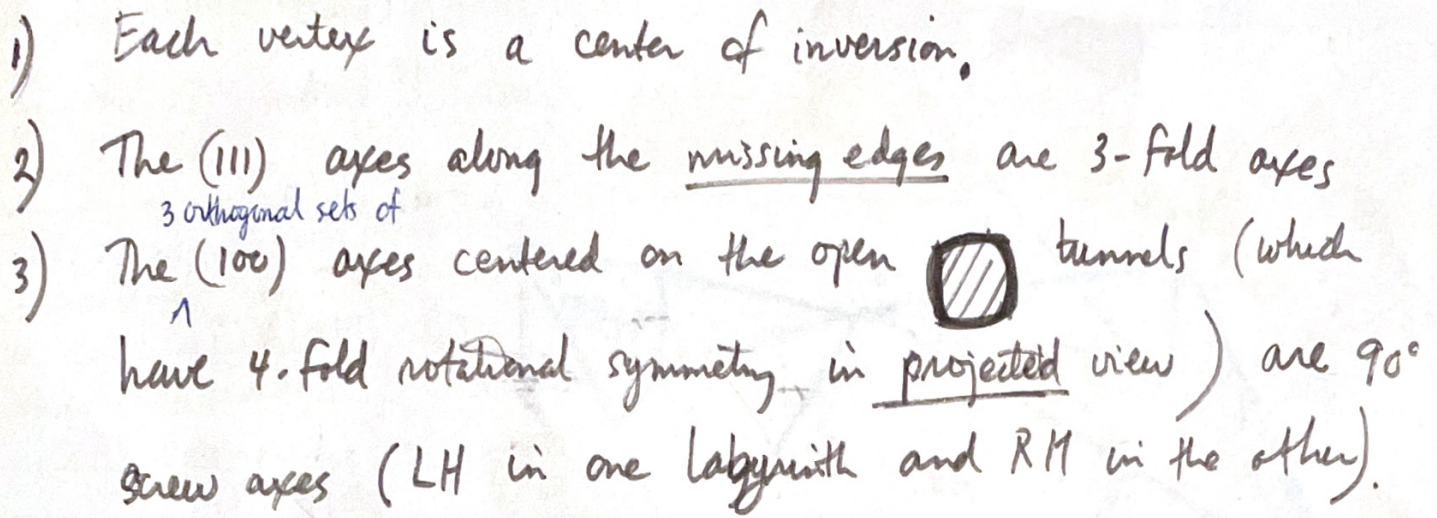 1) Each vertex is a center of inversion.
2) The (111) axes along the missing edges are 3-fold axes
3 orthogonal sets of
3) The ^ (100) axes centered on the open tunnels (which
have 4-fold rotational symmetry in projected view) are 90°
screw axes (LH in one labyrinth and RH in the other).